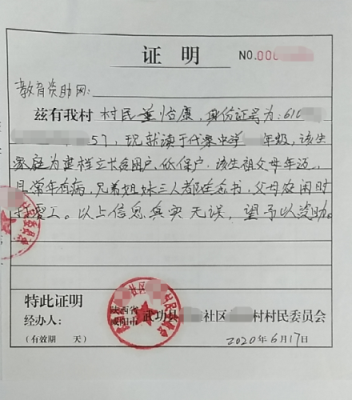 证 明
NO.00
教育资助网:
兹有我村 村民董怡康,身份证号为:610
57,现就读于代寨中学 年级,该生
家庭为建档立卡贫困户,低保户,该生祖父母年迈,
且常年有病,兄弟姐妹三人都在念书,父母农闲时
打零工。以上信息真实无误,望予以资助。
特此证明
陕西省
咸阳市 武功县 社区 村村民委员会
经办人:
(有效期 天)
2020年6月17日